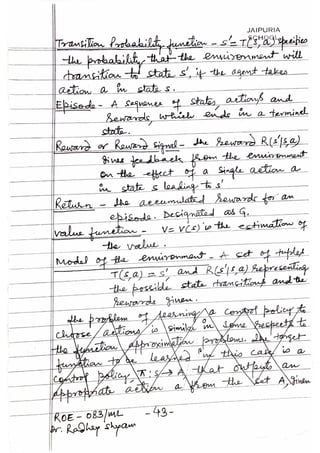 JAIPURIA
SCHOOL
Transition Probability function - s' = T(s,a) specifies
the probability that the environment will
transition to state s', if the agent takes
action a in state s.
Episode - A sequence of states, actions and
rewards, which ends in a terminal
state.
Reward or Reward signal - the reward R(s'|s,a)
gives feedback from the environment
on the effect of a single action a
in state s leading to s'
Return - the accumulated rewards for an
episode. Designated as G.
Value function - V = V(s) is the estimation of
the value.
Model of the environment - A set of tuples
T(s,a) = s', and R(s'|s,a) representing
the possible state transitions and the
rewards given.
The problem of learning a control policy to
choose actions is similar in some respects to
the function approximation problems. The target
function to be learned in this case is a
control policy, π: s→A that outputs an
appropriate action a from the set A, given
ROE - 083/ML -43-
Dr. Radhey Shyam